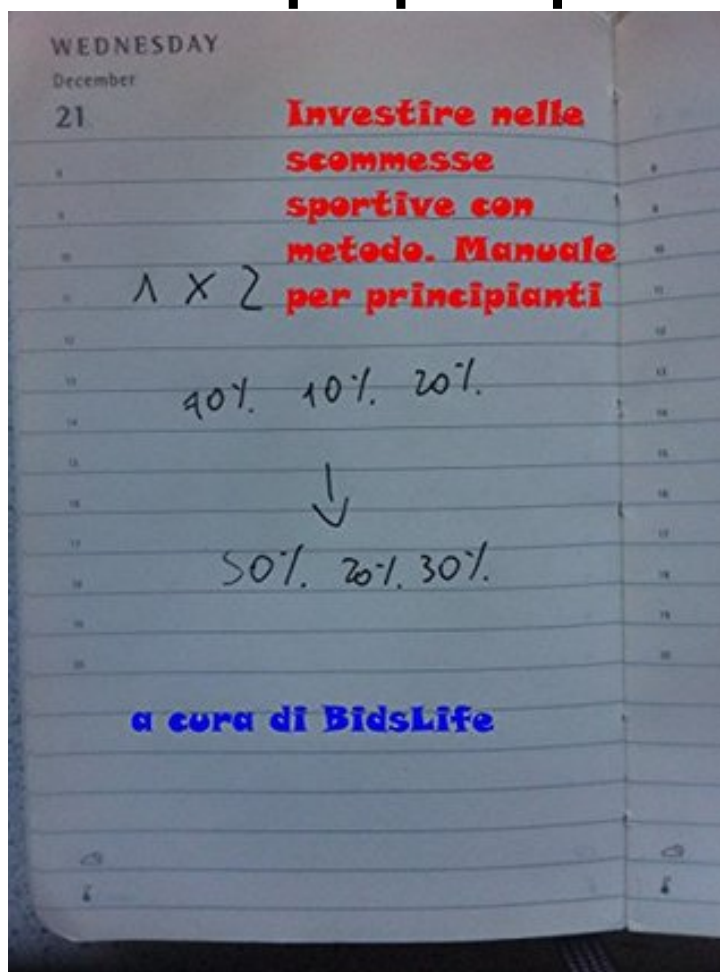 WEDNESDAY
December
21
Investire nelle
scommesse
sportive con
metodo. Manuale
per principianti
1 X 2
40% 10% 20%
↓
50% 20% 30%
a cura di BidsLife